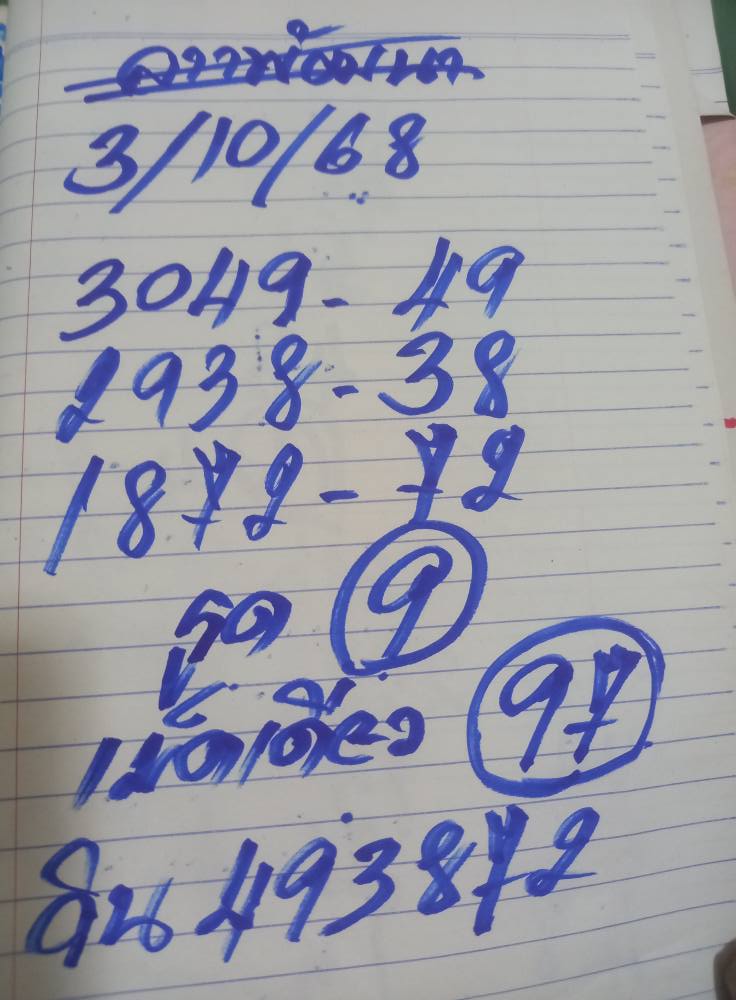 ลาวพัฒนา
3/10/68
3049 - 49
2938 - 38
1872 - 72
รูด 9
เม็ดเดียว 97
วิน 493872